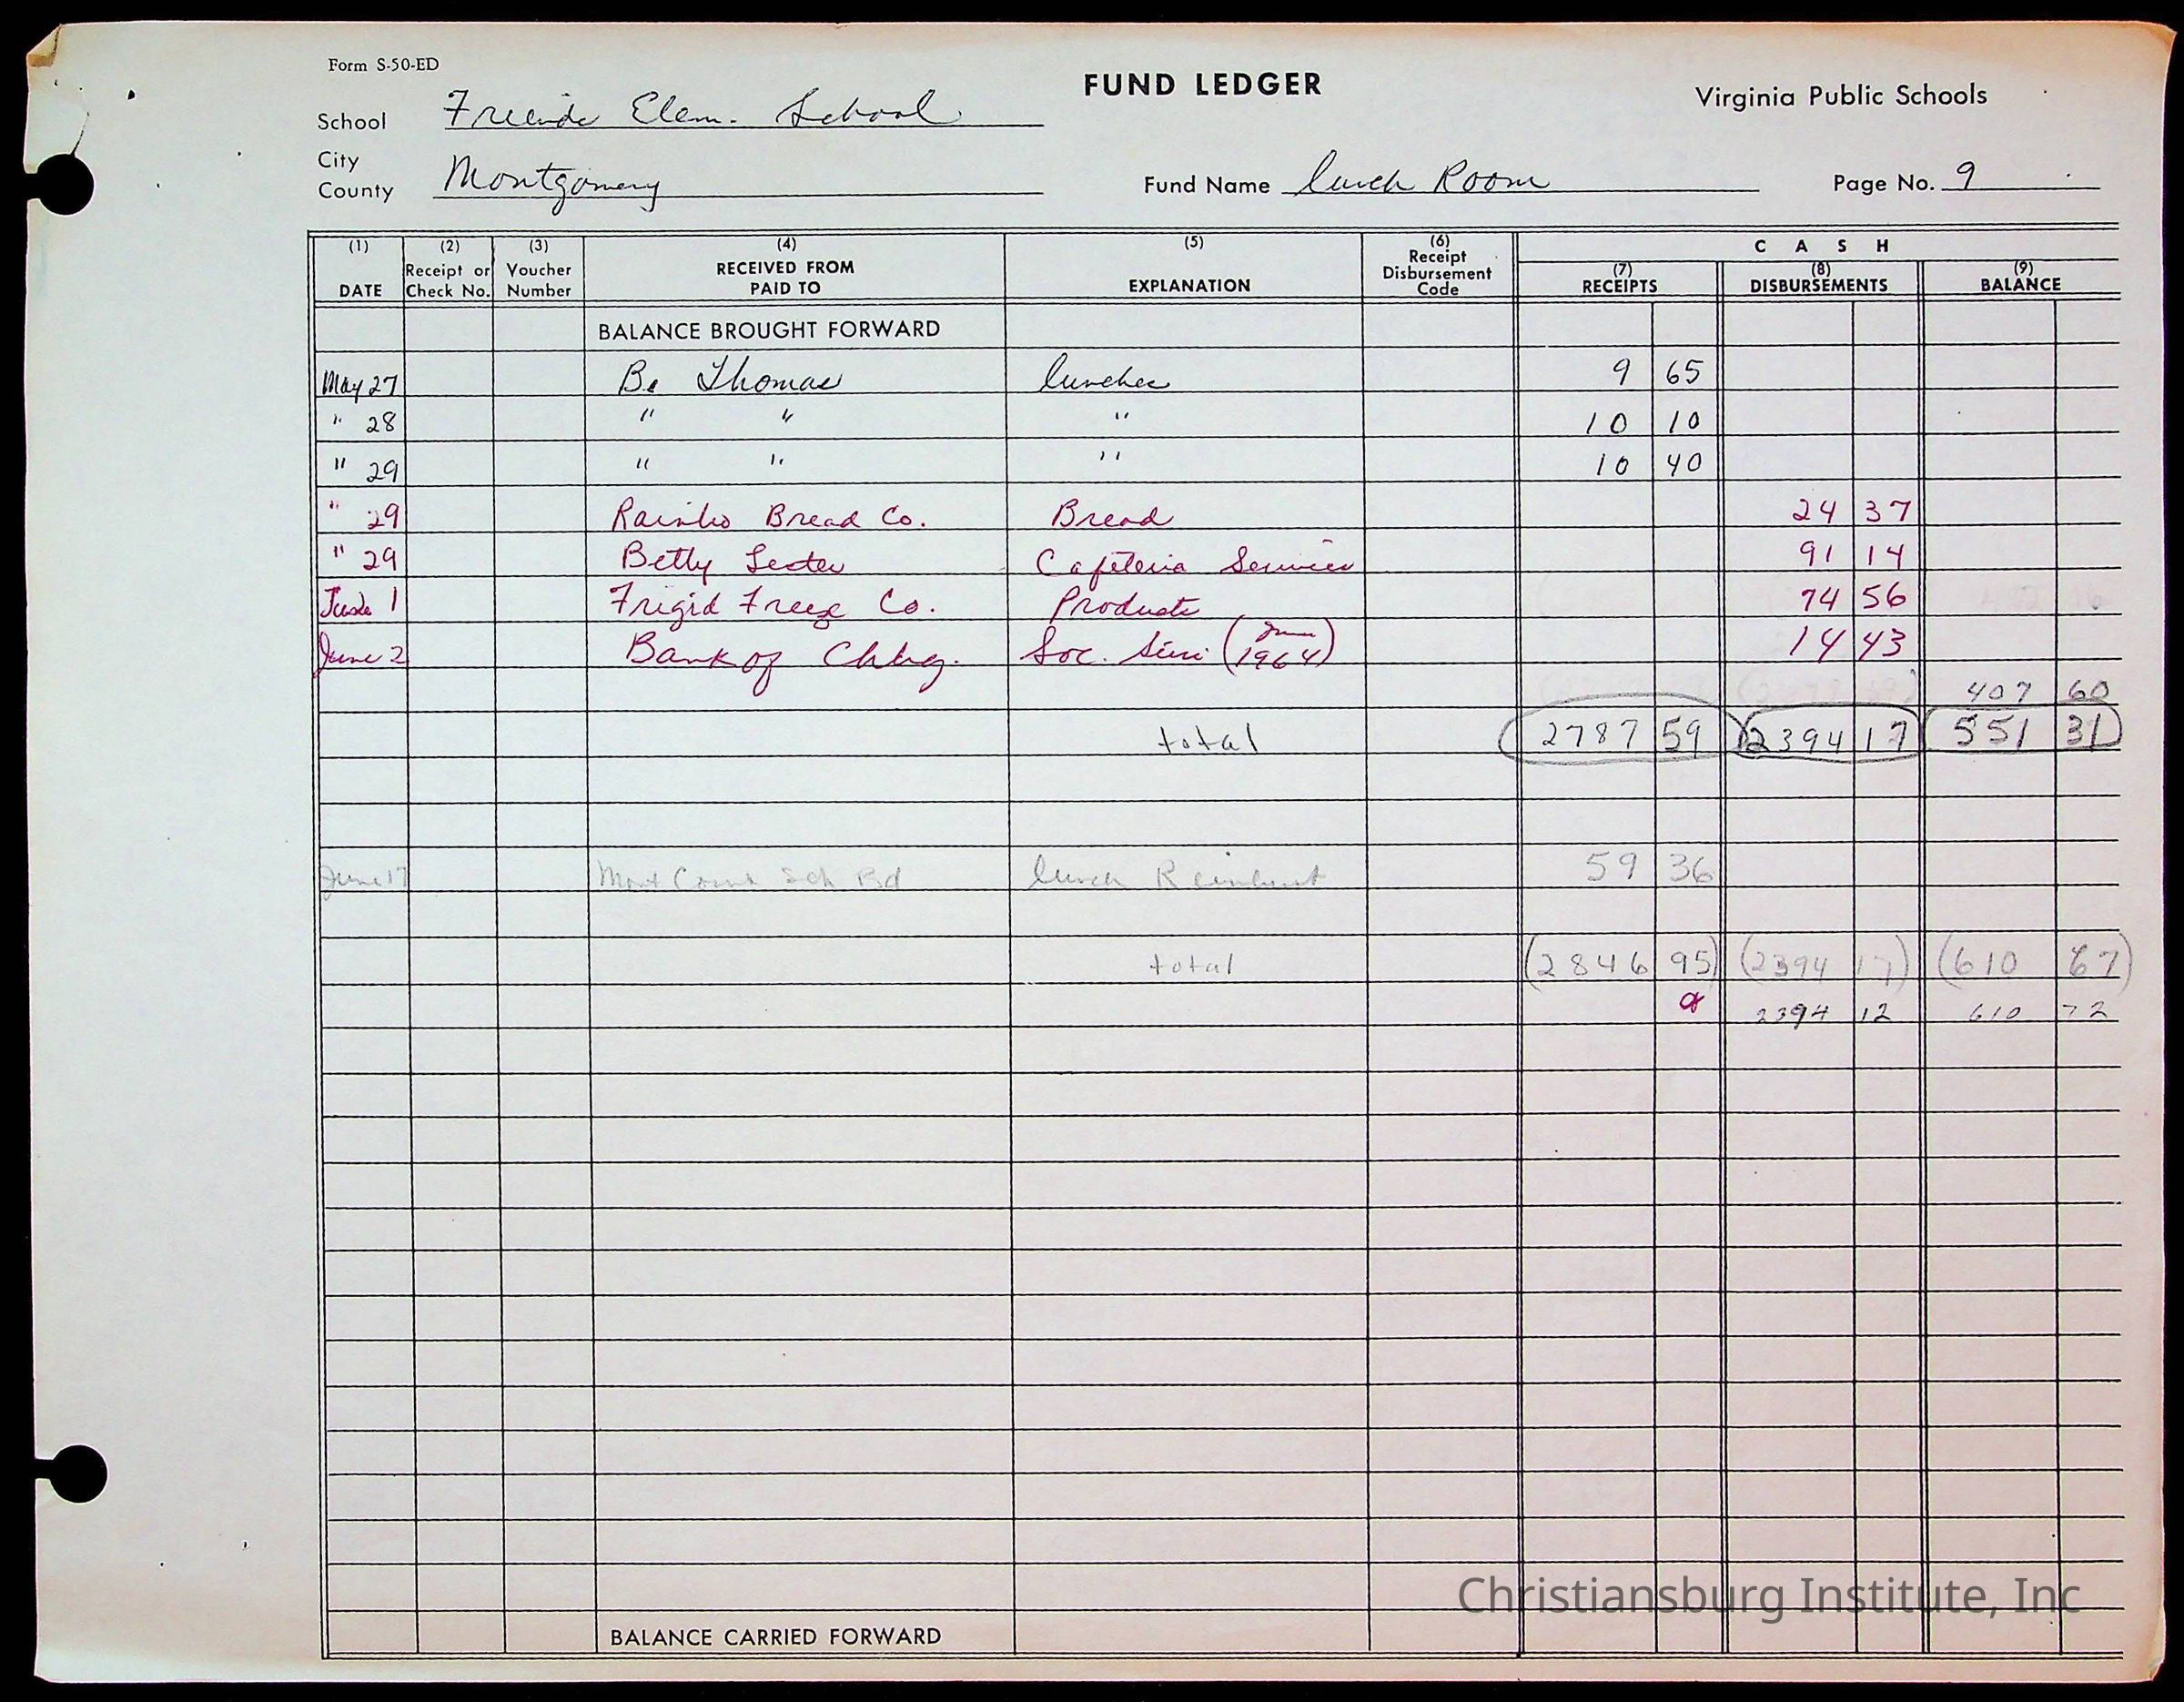 Form S-50-ED
FUND LEDGER
Virginia Public Schools
School Friends Elem. School
City
County Montgomery
Fund Name lunch Room
Page No. 9
(1) (2) (3) (4) (5) (6) C A S H
DATE Receipt or Check No. Voucher Number RECEIVED FROM PAID TO EXPLANATION Receipt Disbursement Code (7) RECEIPTS (8) DISBURSEMENTS (9) BALANCE
BALANCE BROUGHT FORWARD
May 27 B. Thomas lunches 9 65
" 28 " " " 10 10
" 29 " " " 10 40
" 29 Rainbo Bread Co. Bread 24 37
" 29 Betty Lester Cafeteria Services 91 14
June 1 Frigid Freeze Co. Products 74 56
June 2 Bank of Chbg. Soc. (June 1964) 14 43
407 60
total 2787 59 2394 17 551 31
June 17 Mont Coun Sch Bd lunch 59 36
total (2846 95) (2394 17) (610 67)
2394 12 610 72
BALANCE CARRIED FORWARD
Christiansburg Institute, Inc